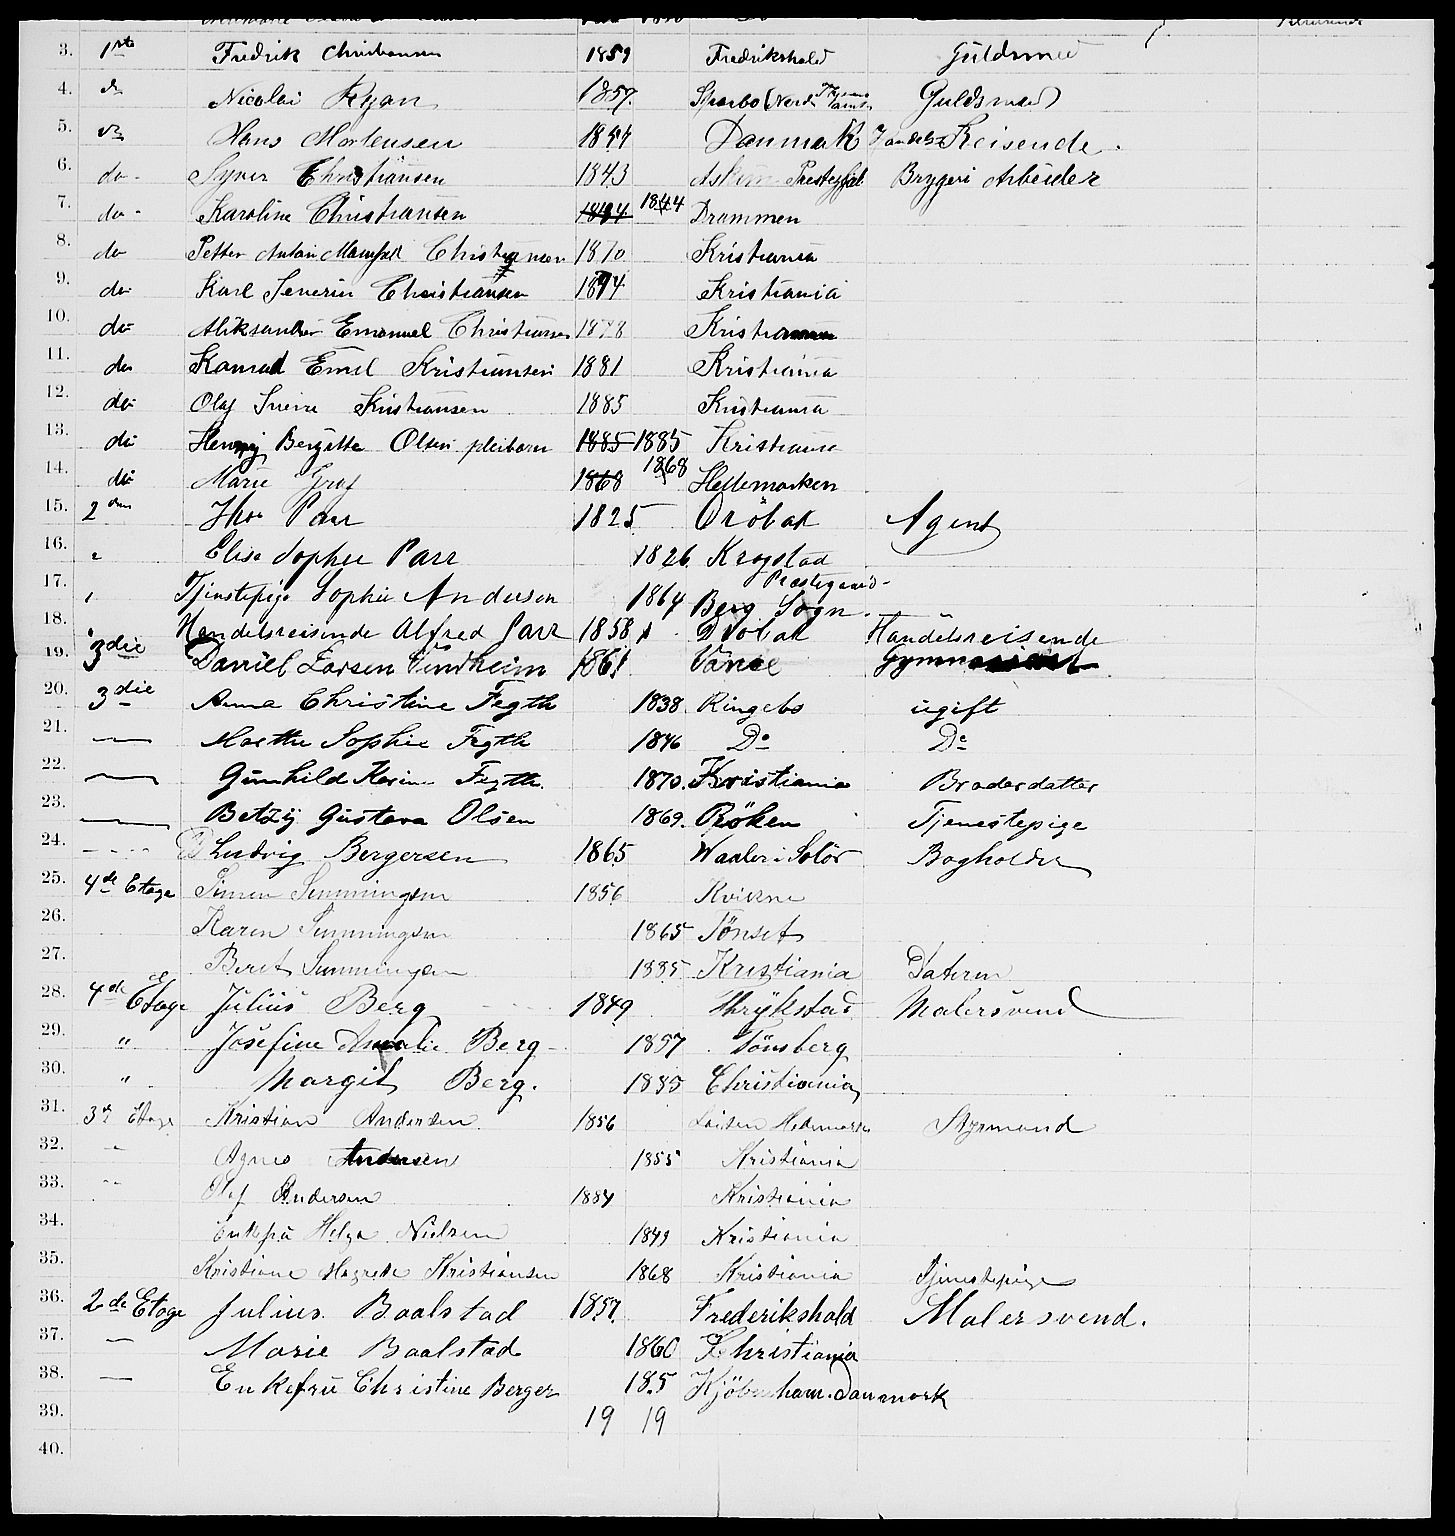 3. 1ste Fredrik Christiansen 1859 Fredrikshald Guldsmed
4. do Nicolai Ryan 1857. Sparbo (Nordr Thjems amt. Guldsmed)
5. do Hans Mortensen 1854 Danmark Handels Reisende.
6. do - Syver Christiansen 1843 Askim Prestegjæld Bryggeri Arbeider
7. do - Karoline Christiansen 1844 1844 Drammen
8. do Petter Anton Christiansen 1870 Kristiania
9. do Karl Severin Christiansen 1874 Kristiania
10. do Aliksander Emanuel Christiansen 1878 Kristiania
11. do Konrad Emil Kristiansen 1881 Kristiania
12. do Olaf Sverre Kristiansen 1885 Kristiania
13. do Henny Bergitte Olsen pleibarn 1885 1885 Kristiania
14. do Marie Graf 1868 1868 Hellemarken
15. 2den Thor Parr 1825 Dröbak Agent
16. " Elise Sophie Parr 1826 Krogstad
17. " Tjenstepige Sophie Andersen 1864 Berg Sogn. Præstegaard-
18. " Handelsreisende Alfred Parr 1858 Dröbak Handelsreisende
19. 3die Daniel Larsen Vindheim 1861 Vanse
20. 3die Anna Christine Fegth 1838 Ringebo ugift
21. — Marthe Sophie Fegth 1846 Do Do
22. — Gunhild Karine Fegth. 1870. Kristiania Broderdatter
23. — Betzÿ Gustava Olsen 1869. Röken Tjenestepige
24. - - - - Ludvig Bergersen 1865 Waaler i Solör Bogholder
25. 4de Etage Simen Simmingsen 1856 Kvikne
26. Karen Simmingsen 1865 Tönset
27. Beret Simmingsen 1885 Kristiania Dateren
28. 4de Etage Julius Berg 1849 Thrykstad Malersvend
29. " Josefine Amalie Berg - 1857 Tönsberg
30. " Margit Berg. 1885 Christiania
31. 3de Etage Kristian Andersen. 1856 Löiten Hedemarken Styrmand
32. " Agnes Andersen 1855 Kristiania
33. " Olaf Andersen 1884 Kristiania
34. Enkefru Helga Nielsen 1849 Kristiania
35. Kristiane Magrete Kristiansen 1868 Kristiania Tjenestepige
36. 2de Etage Julius. Baalstad 1857. Frederikshald Malersvend.
37. — Marie Baalstad 1860 Khristiania
38. — Enkefru Christine Berger 185 Kjöbenham. Danmark
39. 19 19
40.